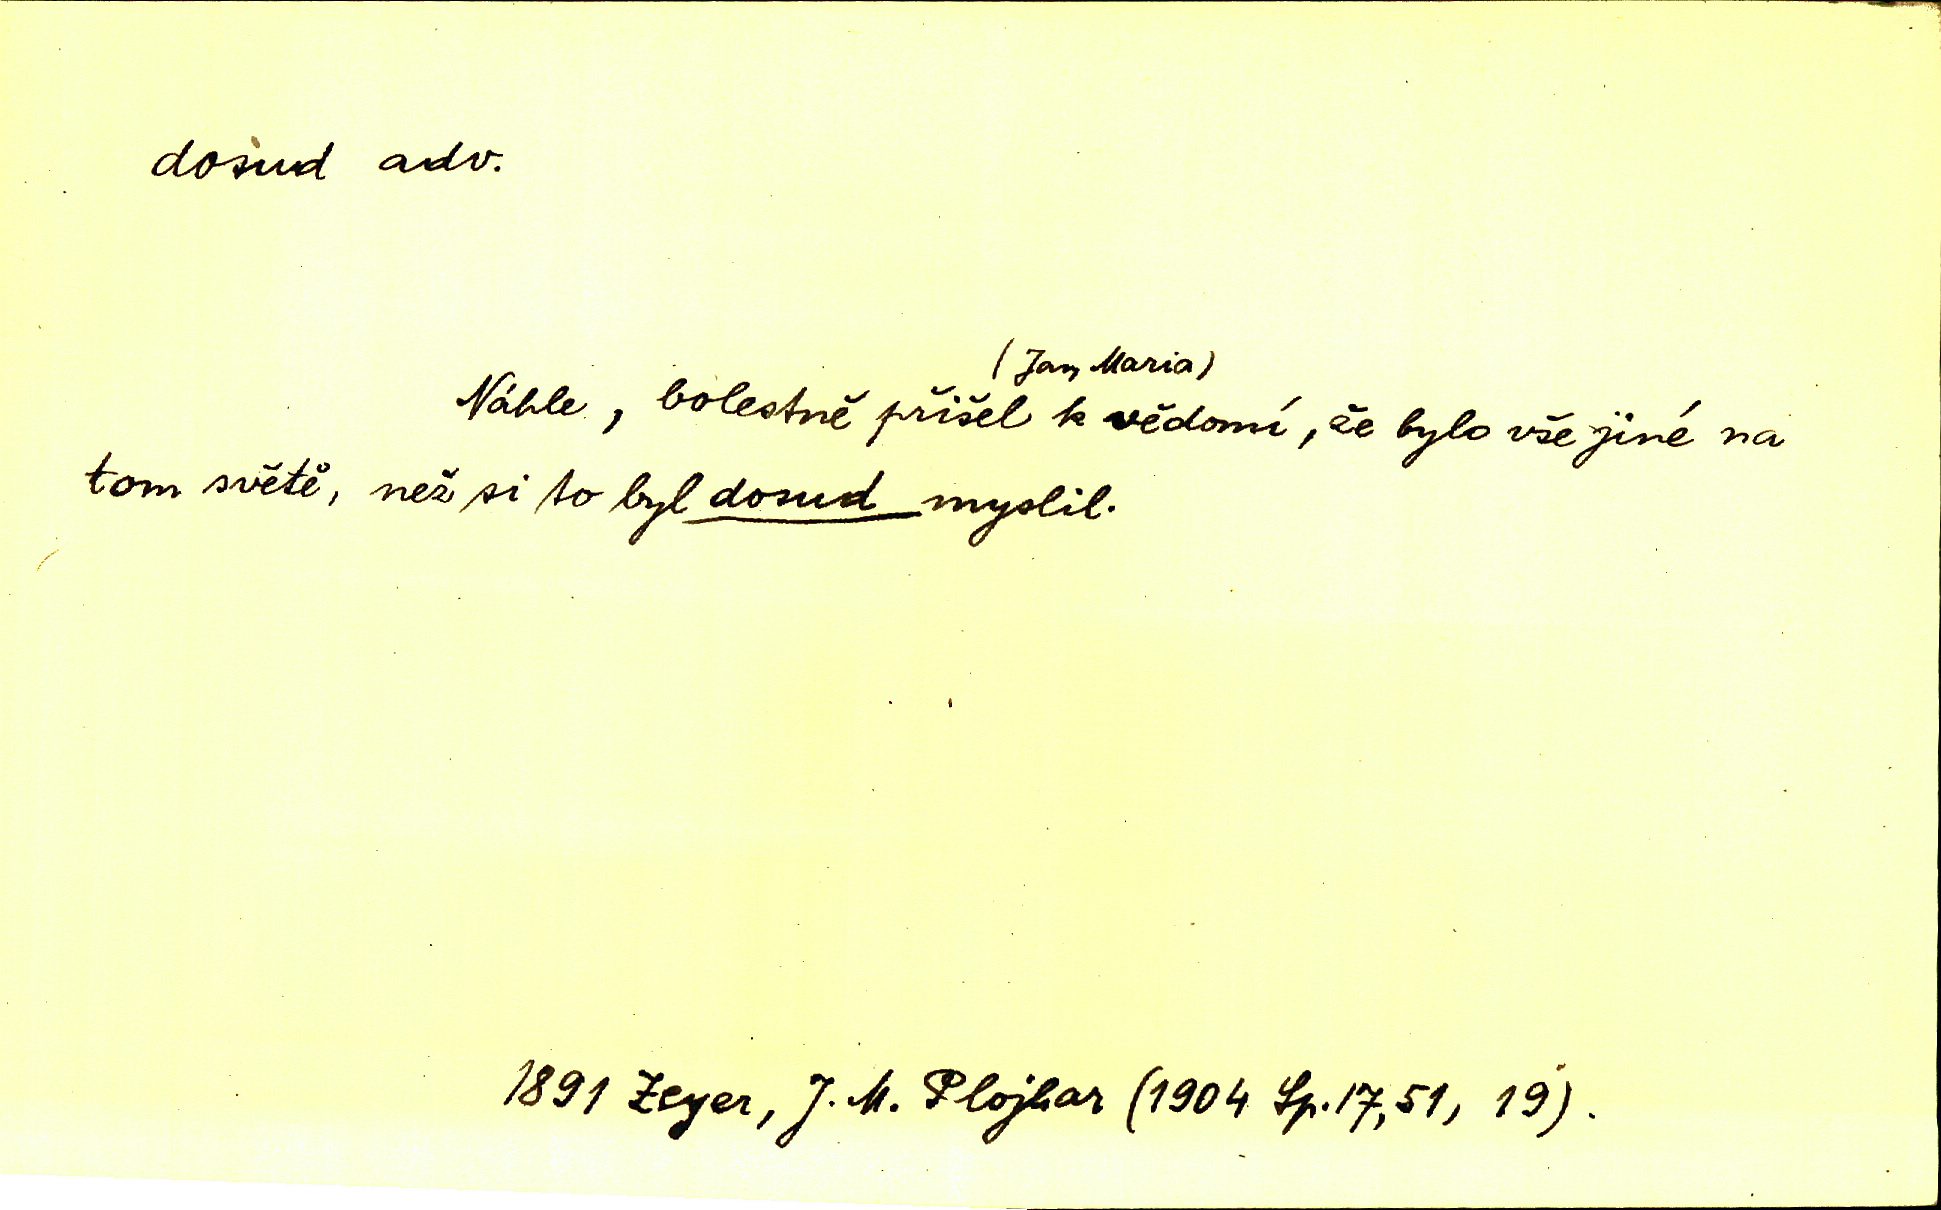 dosud adv.
(Jan Maria)
Náhle, bolestně přišel k vědomí, že bylo vše jiné na
tom světě, než si to byl dosud myslil.
1891 Zeyer, J. M. Plojhar (1904 Sp. 17, 51, 19).